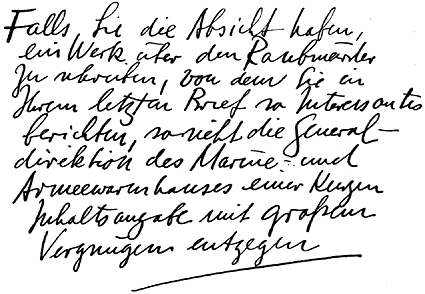 Falls Sie die Absicht haben,
ein Werk über den Raubmörder
zu schreiben, von dem Sie in
Ihrem letzten Brief so Interessantes
berichten, so sieht die General-
direktion des Marine- und
Armeewarenhauses einer kurzen
Inhaltsangabe mit großem
Vergnügen entgegen